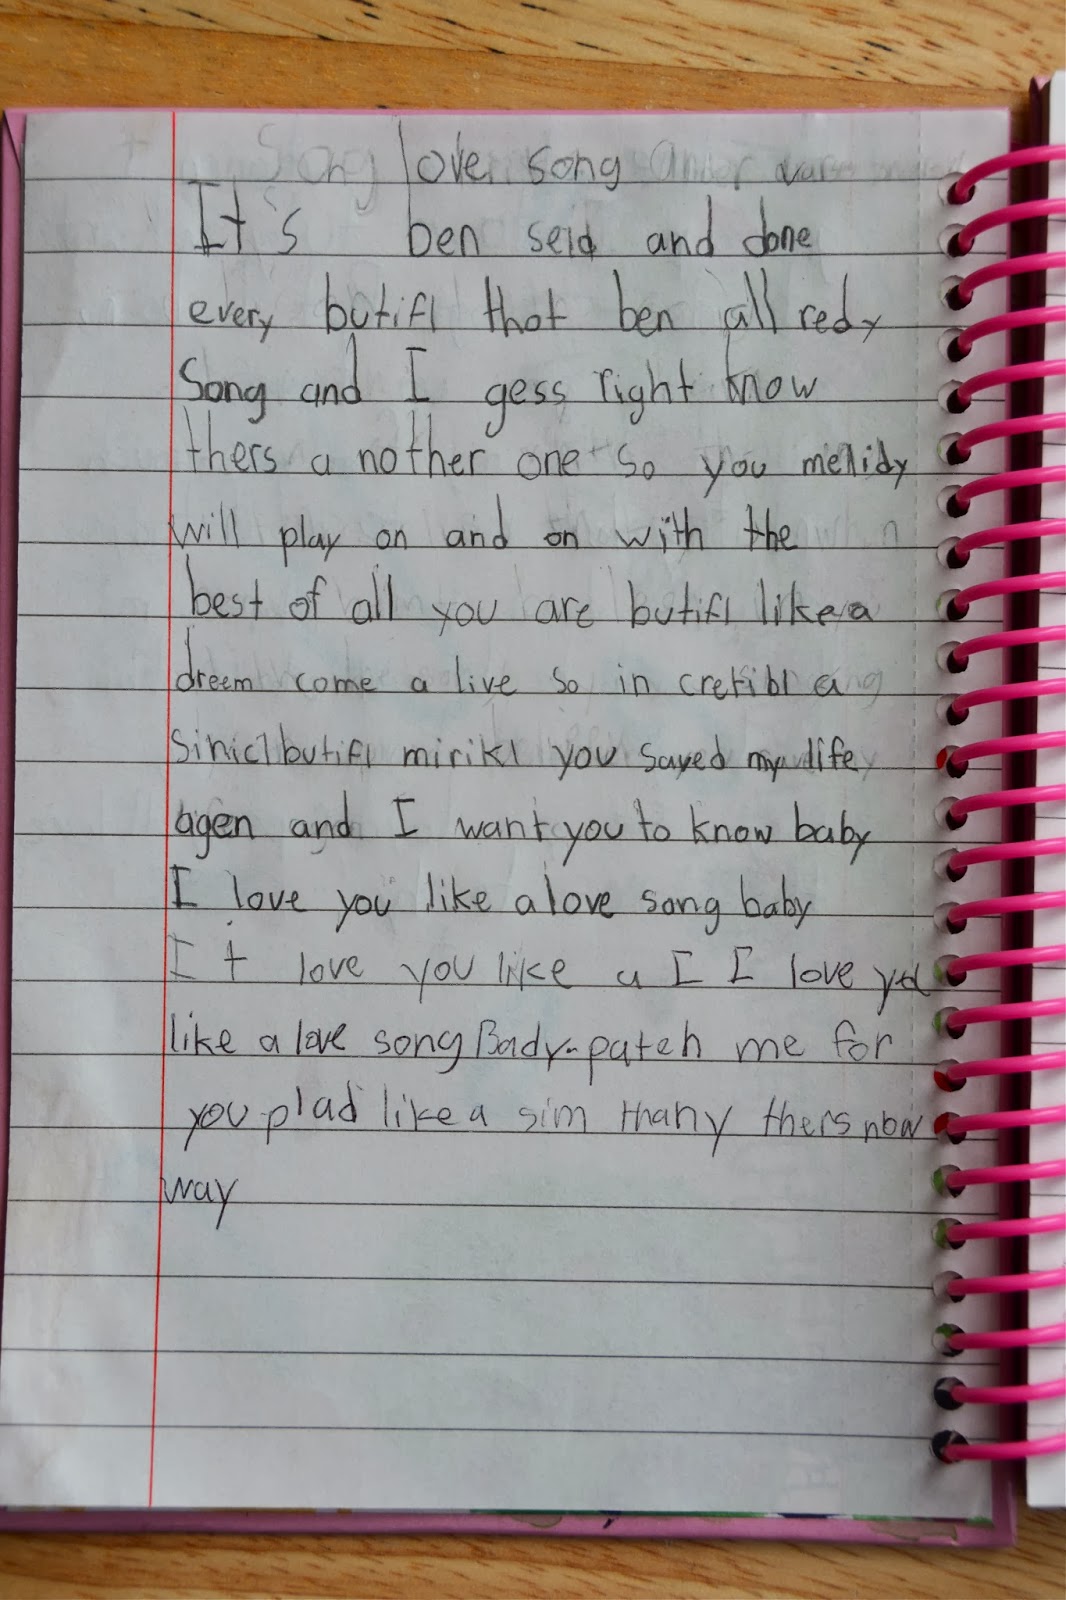 love song
It's ben seid and done
every butifl thot ben all redy
Song and I gess right know
thers a nother one so you melidy
will play on and on with the
best of all you are butifl like a
dreem come a live so in cretibl a
sinicl butifl mirikl you saved my life
agen and I want you to know baby
I love you like a love song baby
I t love you like a I I love yd
like a love song Bady-pateh me for
you plad like a sim thany thers now
way